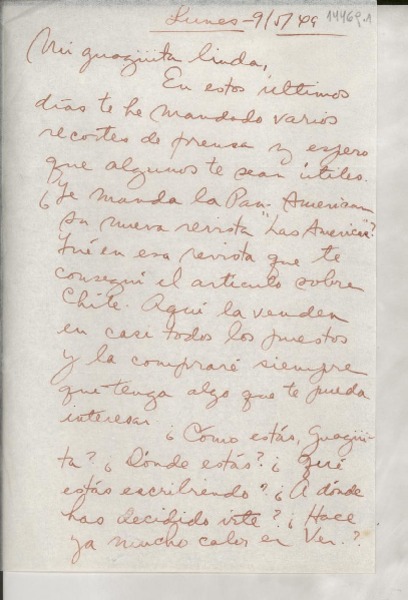 Lunes - 9/5/49
14469.1
Mi guagüita linda,
En estos últimos
días te he mandado varios
recortes de prensa y espero
que algunos te sean útiles.
¿Te manda la Pan-American
su nueva revista "Las Americas"?
Fué en esa revista que te
conseguí el artículo sobre
Chile. Aquí la venden
en casi todos los puestos
y la compraré siempre
que tenga algo que te pueda
interesar.
¿Cómo estás, guagüi-
ta? ¿Dónde estás? ¿Qué
estás escribiendo? ¿A dónde
has decidido irte? ¿Hace
ya mucho calor en Ver.?